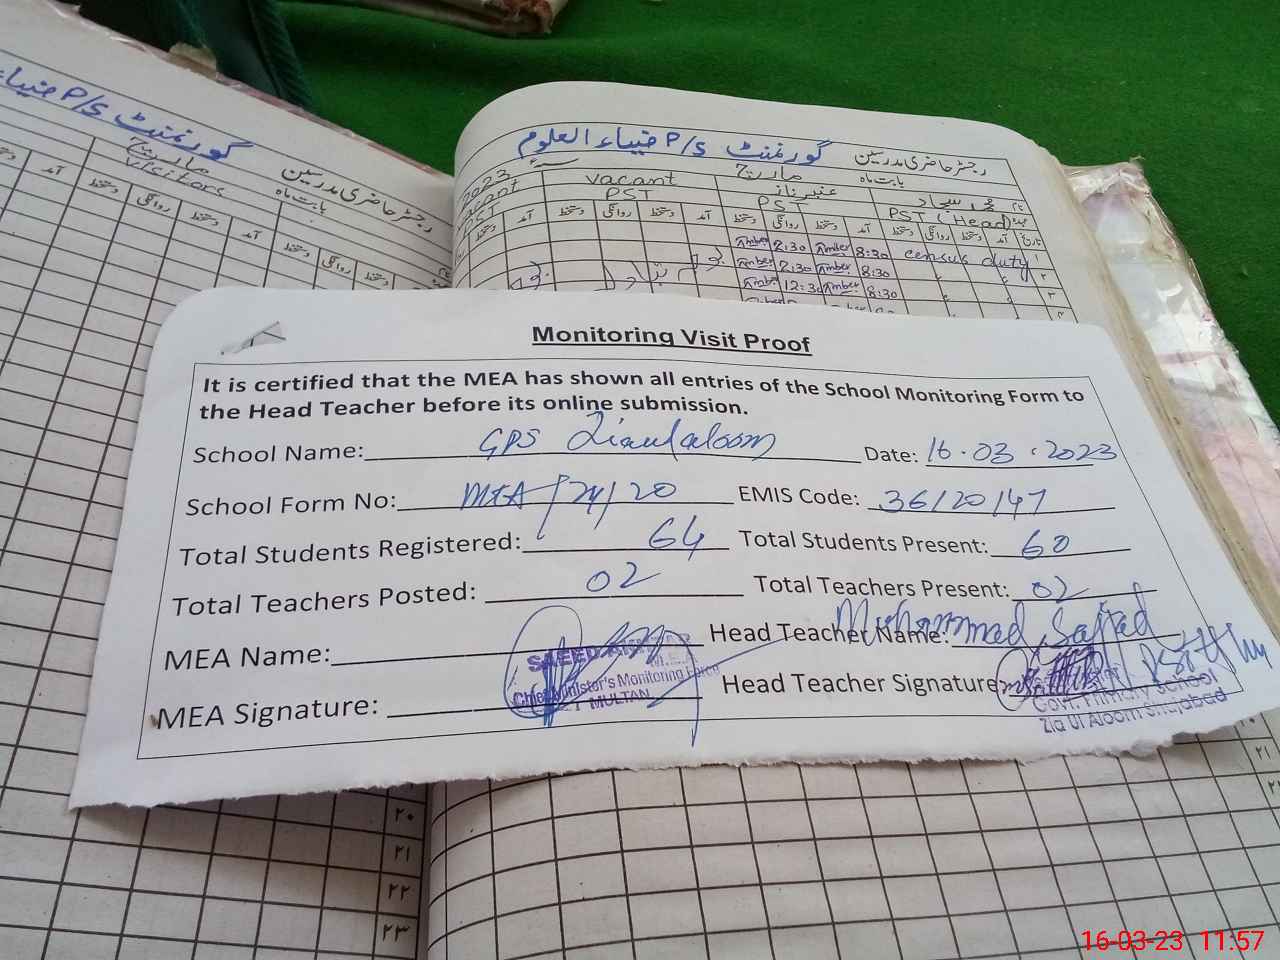 گورنمنٹ P/S ضیاء
رجسٹر حاضری مدرسین
بابت ماہ
مارچ
Visitors
آمد دستخط روانگی دستخط آمد دستخط روانگی دستخط
گورنمنٹ P/S ضیاء العلوم
رجسٹر حاضری مدرسین
بابت ماہ مارچ 2023
محمد سجاد عنبر ناز vacant vacant
PST (Head) PST PST PST
تاریخ آمد دستخط روانگی دستخط آمد دستخط روانگی دستخط آمد دستخط روانگی دستخط
census duty 8:30 Amber 2:30 Amber
8:30 Amber 2:30 Amber
8:30 Amber 12:30 Amber
Monitoring Visit Proof
It is certified that the MEA has shown all entries of the School Monitoring Form to
the Head Teacher before its online submission.
School Name: GPS Ziaulaloom Date: 16.03.2023
School Form No: MEA/24/20 EMIS Code: 36120147
Total Students Registered: 64 Total Students Present: 60
Total Teachers Posted: 02 Total Teachers Present: 02
MEA Name: Head Teacher Name: Muhammad Sajjad
SAEED
M.E.A
Chief Minister's Monitoring Force
MULTAN
MEA Signature: Head Teacher Signature
Govt. Primary School
Zia Ul Aloom Shujabad
۲۰
۲۱
۲۲
۲۳
۲۱
16-03-23 11:57